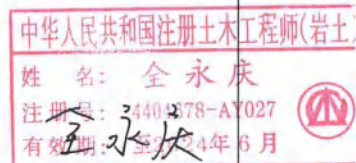 中华人民共和国注册土木工程师(岩土)
姓 名: 全永庆
注册号: 4404678-AY027
有效期: 至2024年6月
全永庆